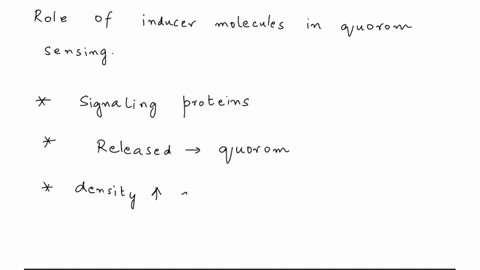 Role of inducer molecules in quorom
sensing.
* Signaling proteins
* Released → quorom
* density ↑